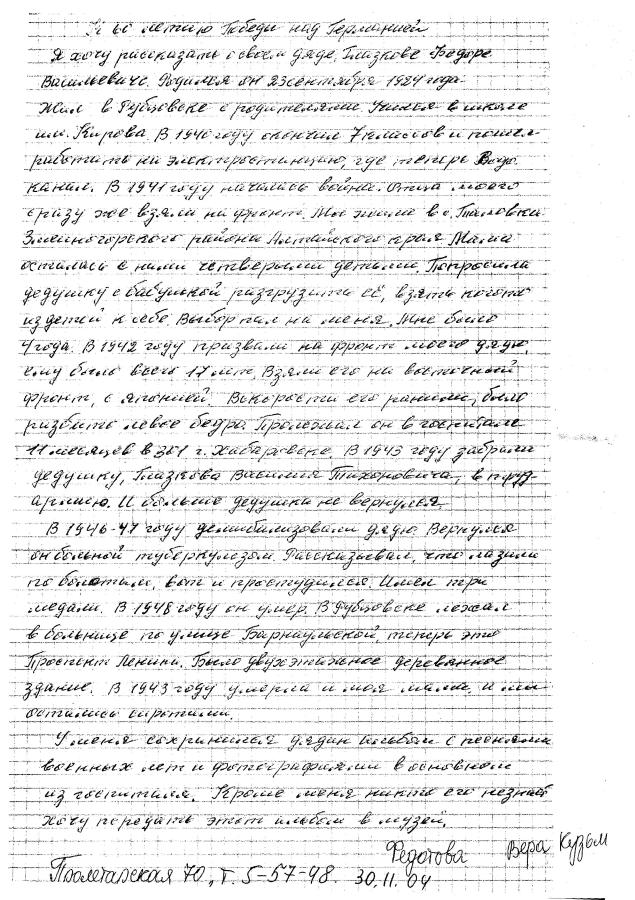 К 60 летию Победы над Германией
Я хочу рассказать о своем дяде, Глазкове Федоре
Васильевиче. Родился он 23 сентября 1924 года
Жил в Рубцовске с родителями. Учился в школе
им. Кирова. В 1940 году окончил 7 классов и пошел
работать на электростанцию, где теперь Водо-
канал. В 1941 году началась война. Отца моего
сразу же взяли на фронт. Мы жили в с.
Змеиногорского района Алтайского края. Мама
осталась с нами четверыми детьми. Попросила
дедушку с бабушкой разгрузить её, взять кого то
из детей к себе. Выбор пал на меня. Мне было
4 года. В 1942 году призвали на фронт моего дядю,
ему было всего 17 лет. Взяли его на восточный
фронт, с японией. Вскорости его ранили, было
разбито левое бедро. Пролежал он в госпитале
11 месяцев в г. Хабаровске. В 1943 году забрали
дедушку, Глазкова Василия Тихоновича, в труд-
армию. И больше дедушка не вернулся.
В 1946-47 году демобилизовали дядю. Вернулся
он больной туберкулезом. Рассказывал, что лазили
по болотам, вот и простудился. Имел три
медали. В 1948 году он умер. В Рубцовске лежал
в больнице по улице Барнаульской теперь это
Проспект Ленина. Было двухэтажное деревянное
здание. В 1943 году умерла и моя мама и мы
остались сиротами.
У меня сохранился дядин альбом с песнями
военных лет и фотографиями в основном
из госпиталя. Кроме меня никто его не знает
Хочу передать этот альбом в музей.
Федотова Вера Кузьм
Пролетарская 70, т. 5-57-98. 30.11.04